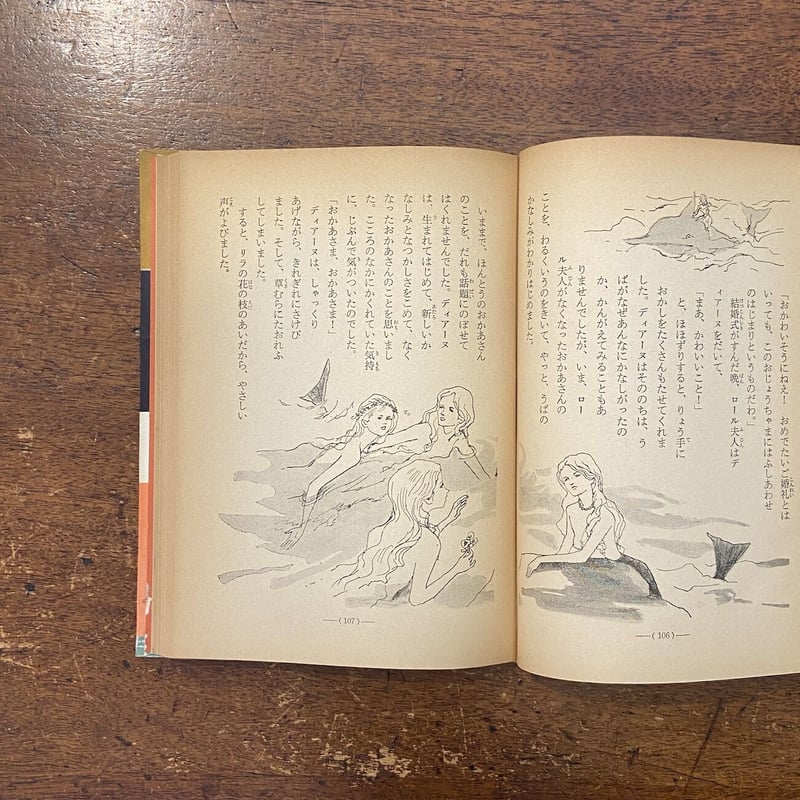 「おかわいそうにねえ! おめでたいご婚礼とは
いっても、このおじょうちゃまにはふしあわせ
のはじまりというものだわ。」
結婚式がすんだ晩、ロール夫人はデ
ィアーヌをだいて、
「まあ、かわいいこと!」
と、ほほずりすると、りょう手に
おかしをたくさんもたせてくれま
した。ディアーヌはそののちは、う
ばがなぜあんなにかなしがったの
か、かんがえてみることもあ
りませんでしたが、いま、ロー
ル夫人がなくなったおかあさんの
ことを、わるくいうのをきいて、やっと、うばの
かなしみがわかりはじめました。
—(106)—
いままで、ほんとうのおかあさん
のことを、だれも話題にのぼせて
はくれませんでした。ディアーヌ
は、生まれてはじめて、新しいか
なしみとなつかしさをこめて、なく
なったおかあさんのことを思いまし
た。こころのなかにかくれていた気持
に、じぶんで気がついたのでした。
「おかあさま、おかあさま!」
ディアーヌは、しゃっくり
あげながら、きれぎれにさけび
ました。そして、草むらにたおれふ
してしまいました。
すると、リラの花の枝のあいだから、やさしい
声がよびました。
—(107)—